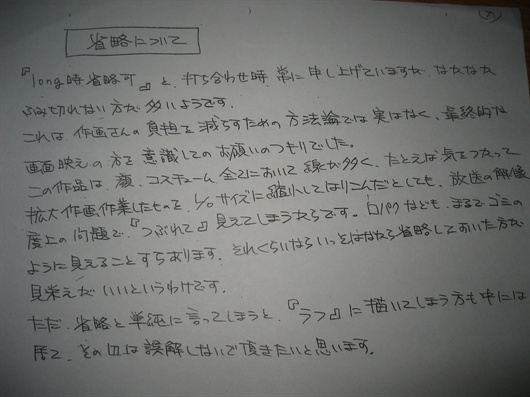 省略について
『long時省略可』と、打ち合わせ時、常に申し上げていますが、なかなか
ふみ切れない方が多いようです。
これは、作画さんの負担を減らすための方法論では実はなく、最終的な
画面映えの方を意識してのお願いのつもりでした。
この作品は、顔、コスチューム全てにおいて線が多く、たとえば気をつかって
拡大作画作業したものを、1/0サイズに縮小してはりこんだとしても、放送の解像
度上の問題で、『つぶれて』見えてしまうからです。口パクなども、まるでゴミの
ように見えることすらあります。それくらいならいっそはなから省略しておいた方が
見栄えがいいというわけです。
ただ、省略と単純に言ってしまうと、『ラフ』に描いてしまう方も中には
居て、その辺は誤解しないで頂きたいと思います。